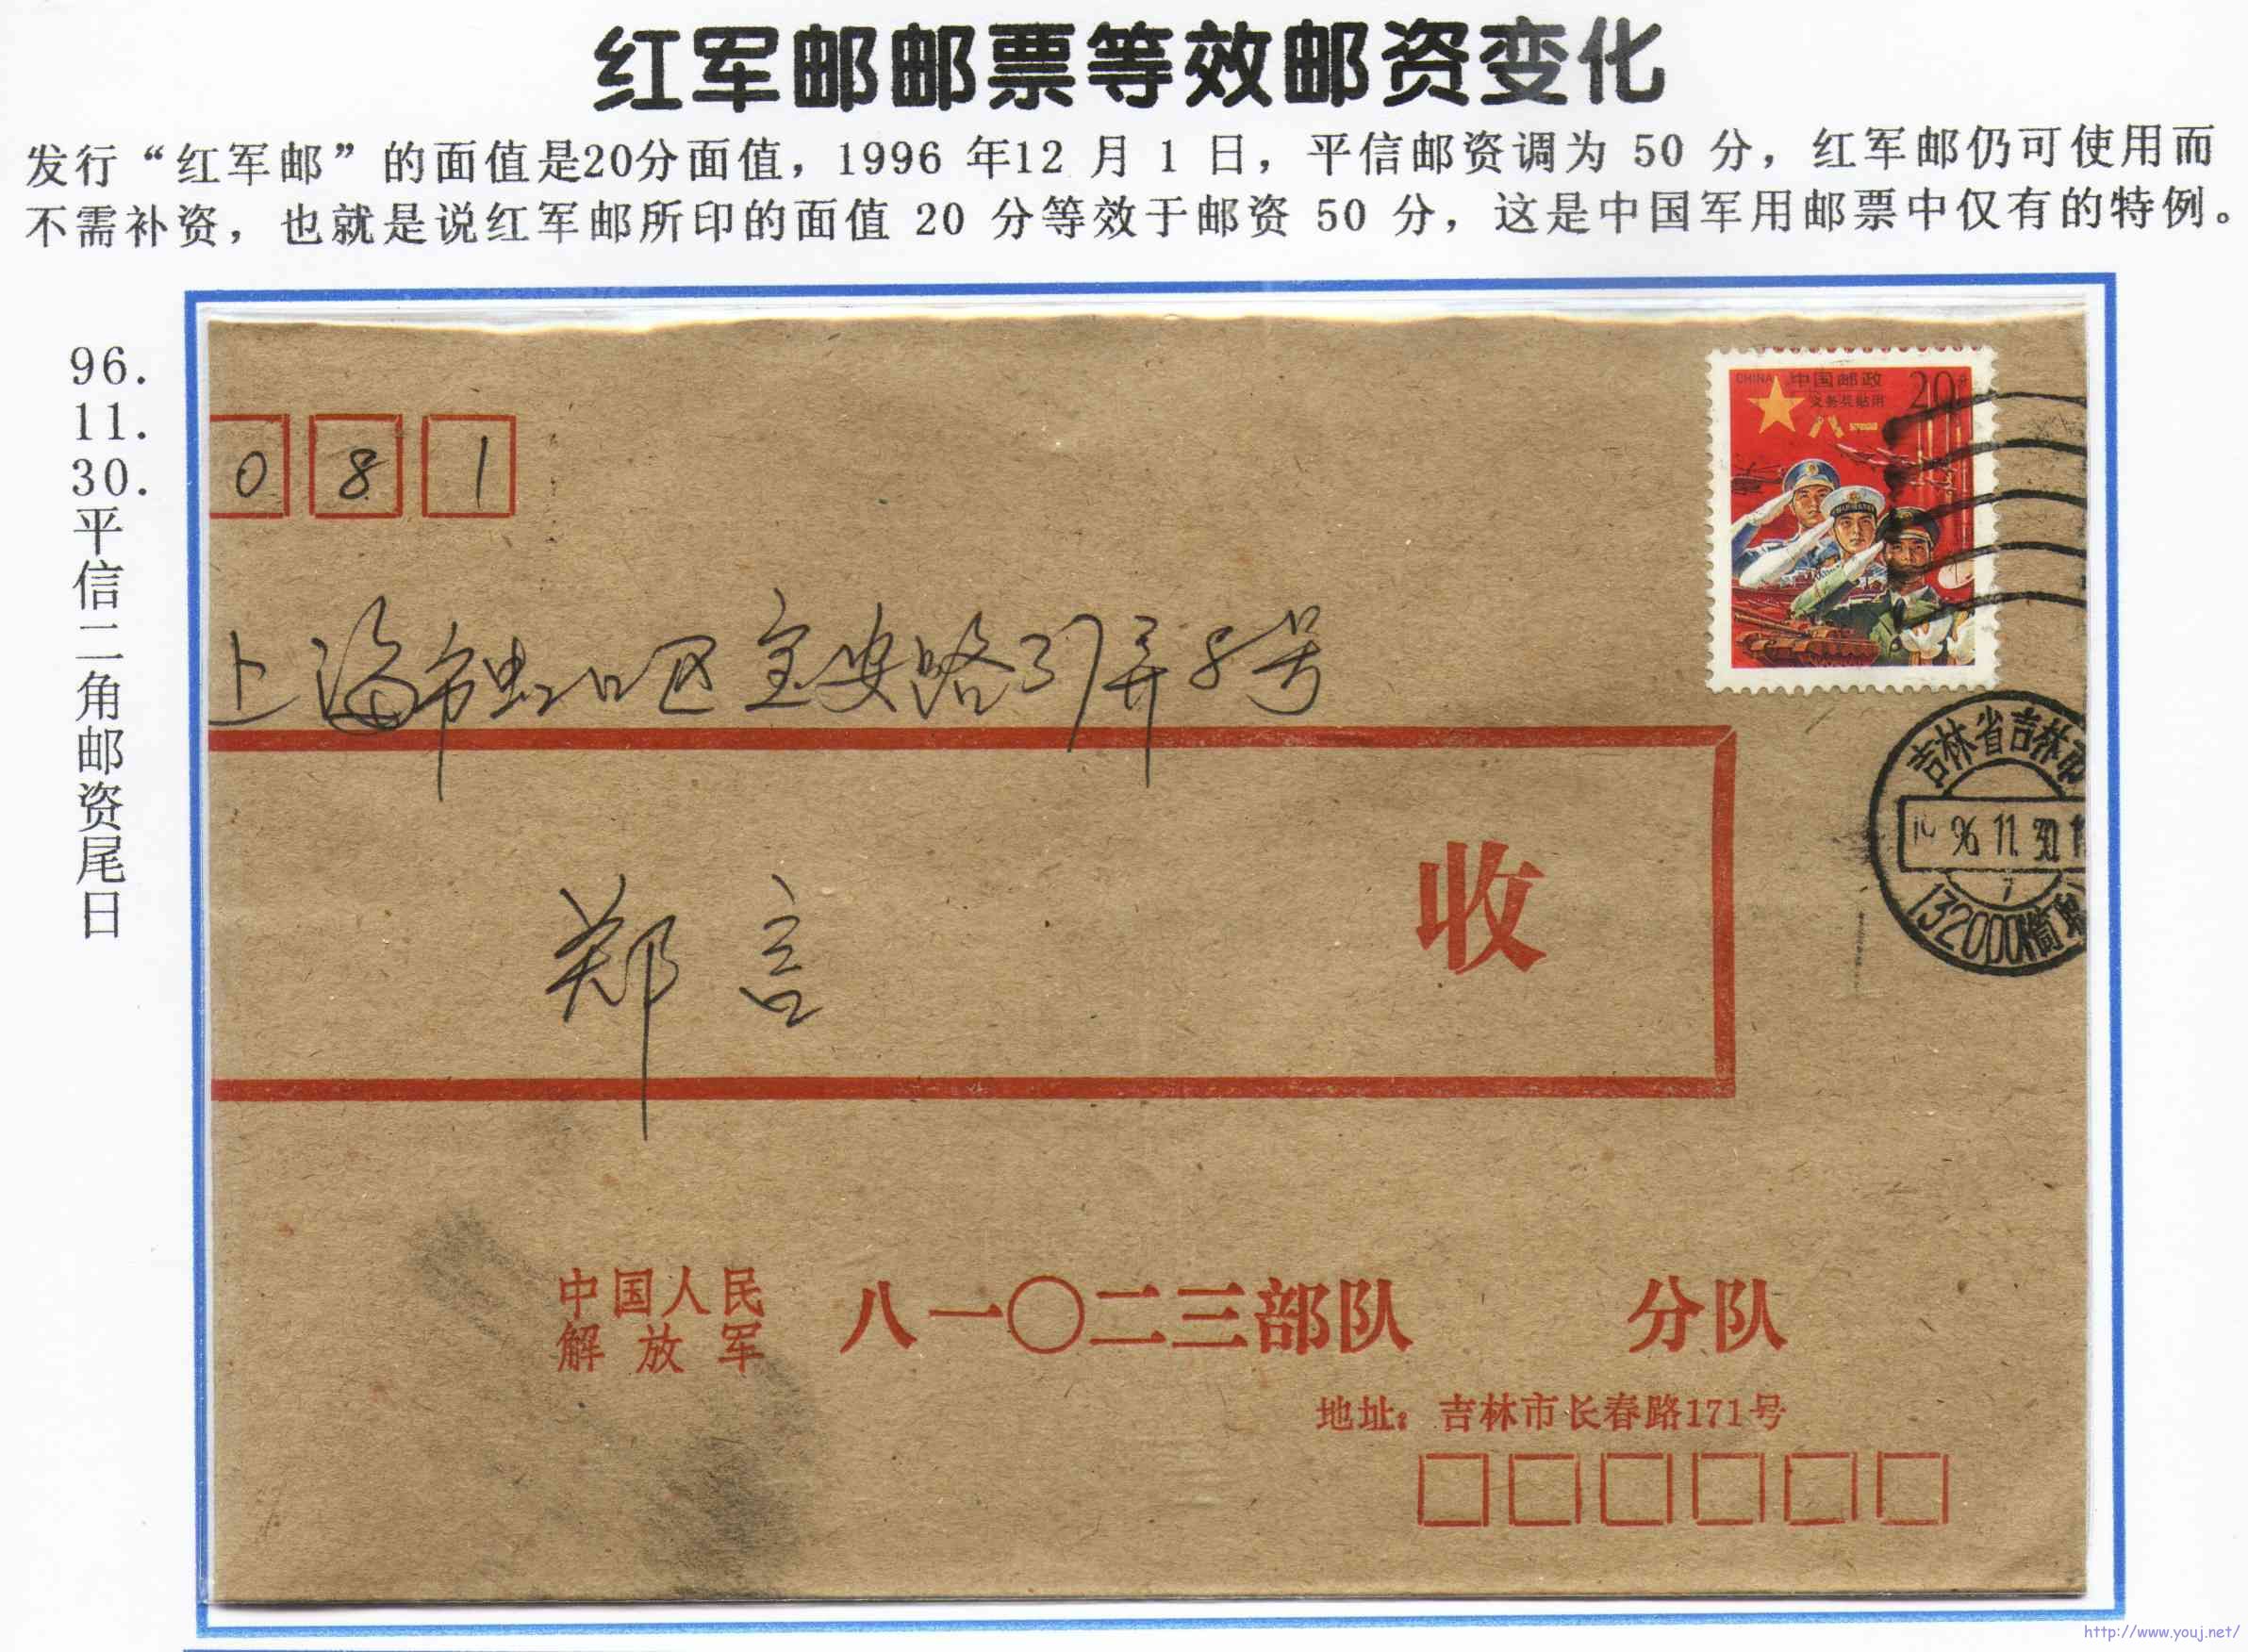 红军邮邮票等效邮资变化
发行“红军邮”的面值是20分面值，1996 年12 月 1 日，平信邮资调为 50 分，红军邮仍可使用而
不需补资，也就是说红军邮所印的面值 20 分等效于邮资 50 分，这是中国军用邮票中仅有的特例。
96.
11.
30.
平信二角邮资尾日
CHINA 中国邮政 20分
义务兵贴用
八一
0 8 1
上海市虹口区宝安路37弄5号
吉林省吉林市
96 11. 30
7
132000
郑言
收
中国人民
解放军
八一〇二三部队 分队
地址：吉林市长春路171号
http://www.youj.net/